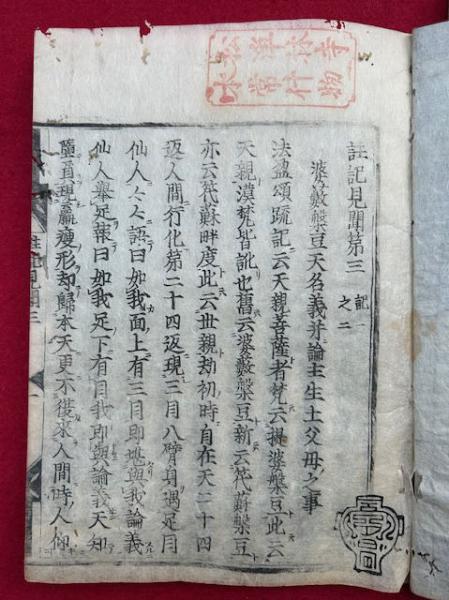 常什物
註記見聞第三 記一之二
婆藪槃豆天名義并論主生土父母之事
法盈頌疏記云天親菩薩者梵云提婆槃豆此云
天親漠梵皆訛也舊云婆藪槃豆新云筏蘓槃豆
亦云筏蘇畔度此云世親劫初時自在天二十四
返人間行化第二十四返現三目八臂身遇足目
仙人々々語曰如我面上有三目即堪與我論義
仙人擧足報曰如我足下有目我即與論義天知
墮負現羸瘦形却歸本天更不從來人間時人仰
註記見聞三